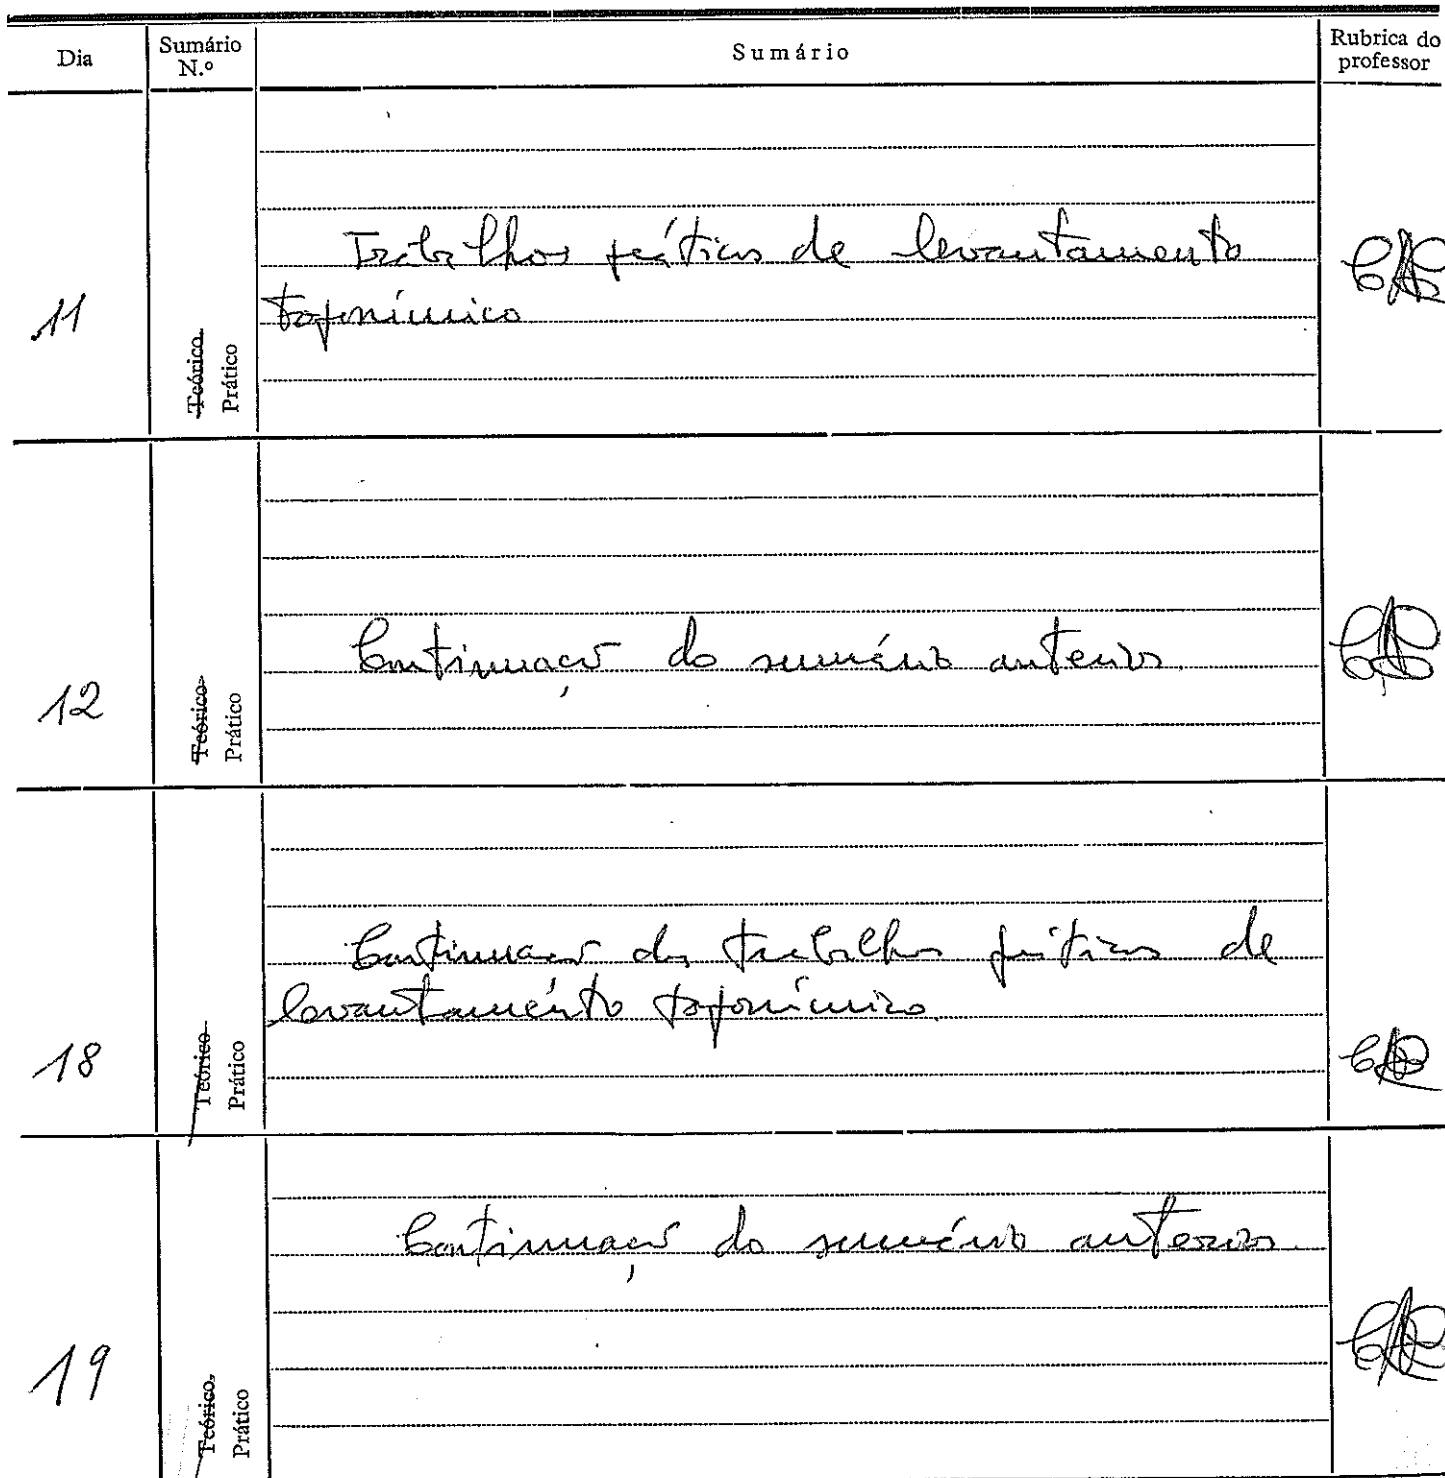 Dia
Sumário N.º
Sumário
Rubrica do professor
11
Teórico
Prático
Trabalhos práticos de levantamento
toponímico
12
Teórico
Prático
Continuação do sumário anterior.
18
Teórico
Prático
Continuação dos trabalhos práticos de
levantamento toponímico.
19
Teórico
Prático
Continuação do sumário anterior.